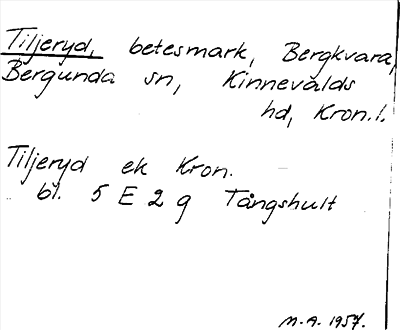 Tiljeryd, betesmark, Bergkvara,
Bergunda sn, Kinnevalds
hd, Kron.l.
Tiljeryd ek Kron.
bl. 5 E 2 g Tångshult
M.A. 1957.